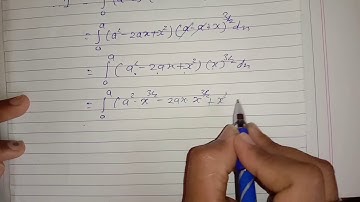 = ∫₀ᵃ (a² - 2ax + x²) (a - a + x)^3/2 dx
= ∫₀ᵃ (a² - 2ax + x²) (x)^3/2 dx
= ∫₀ᵃ (a² · x^3/2 - 2ax · x^3/2 + x²